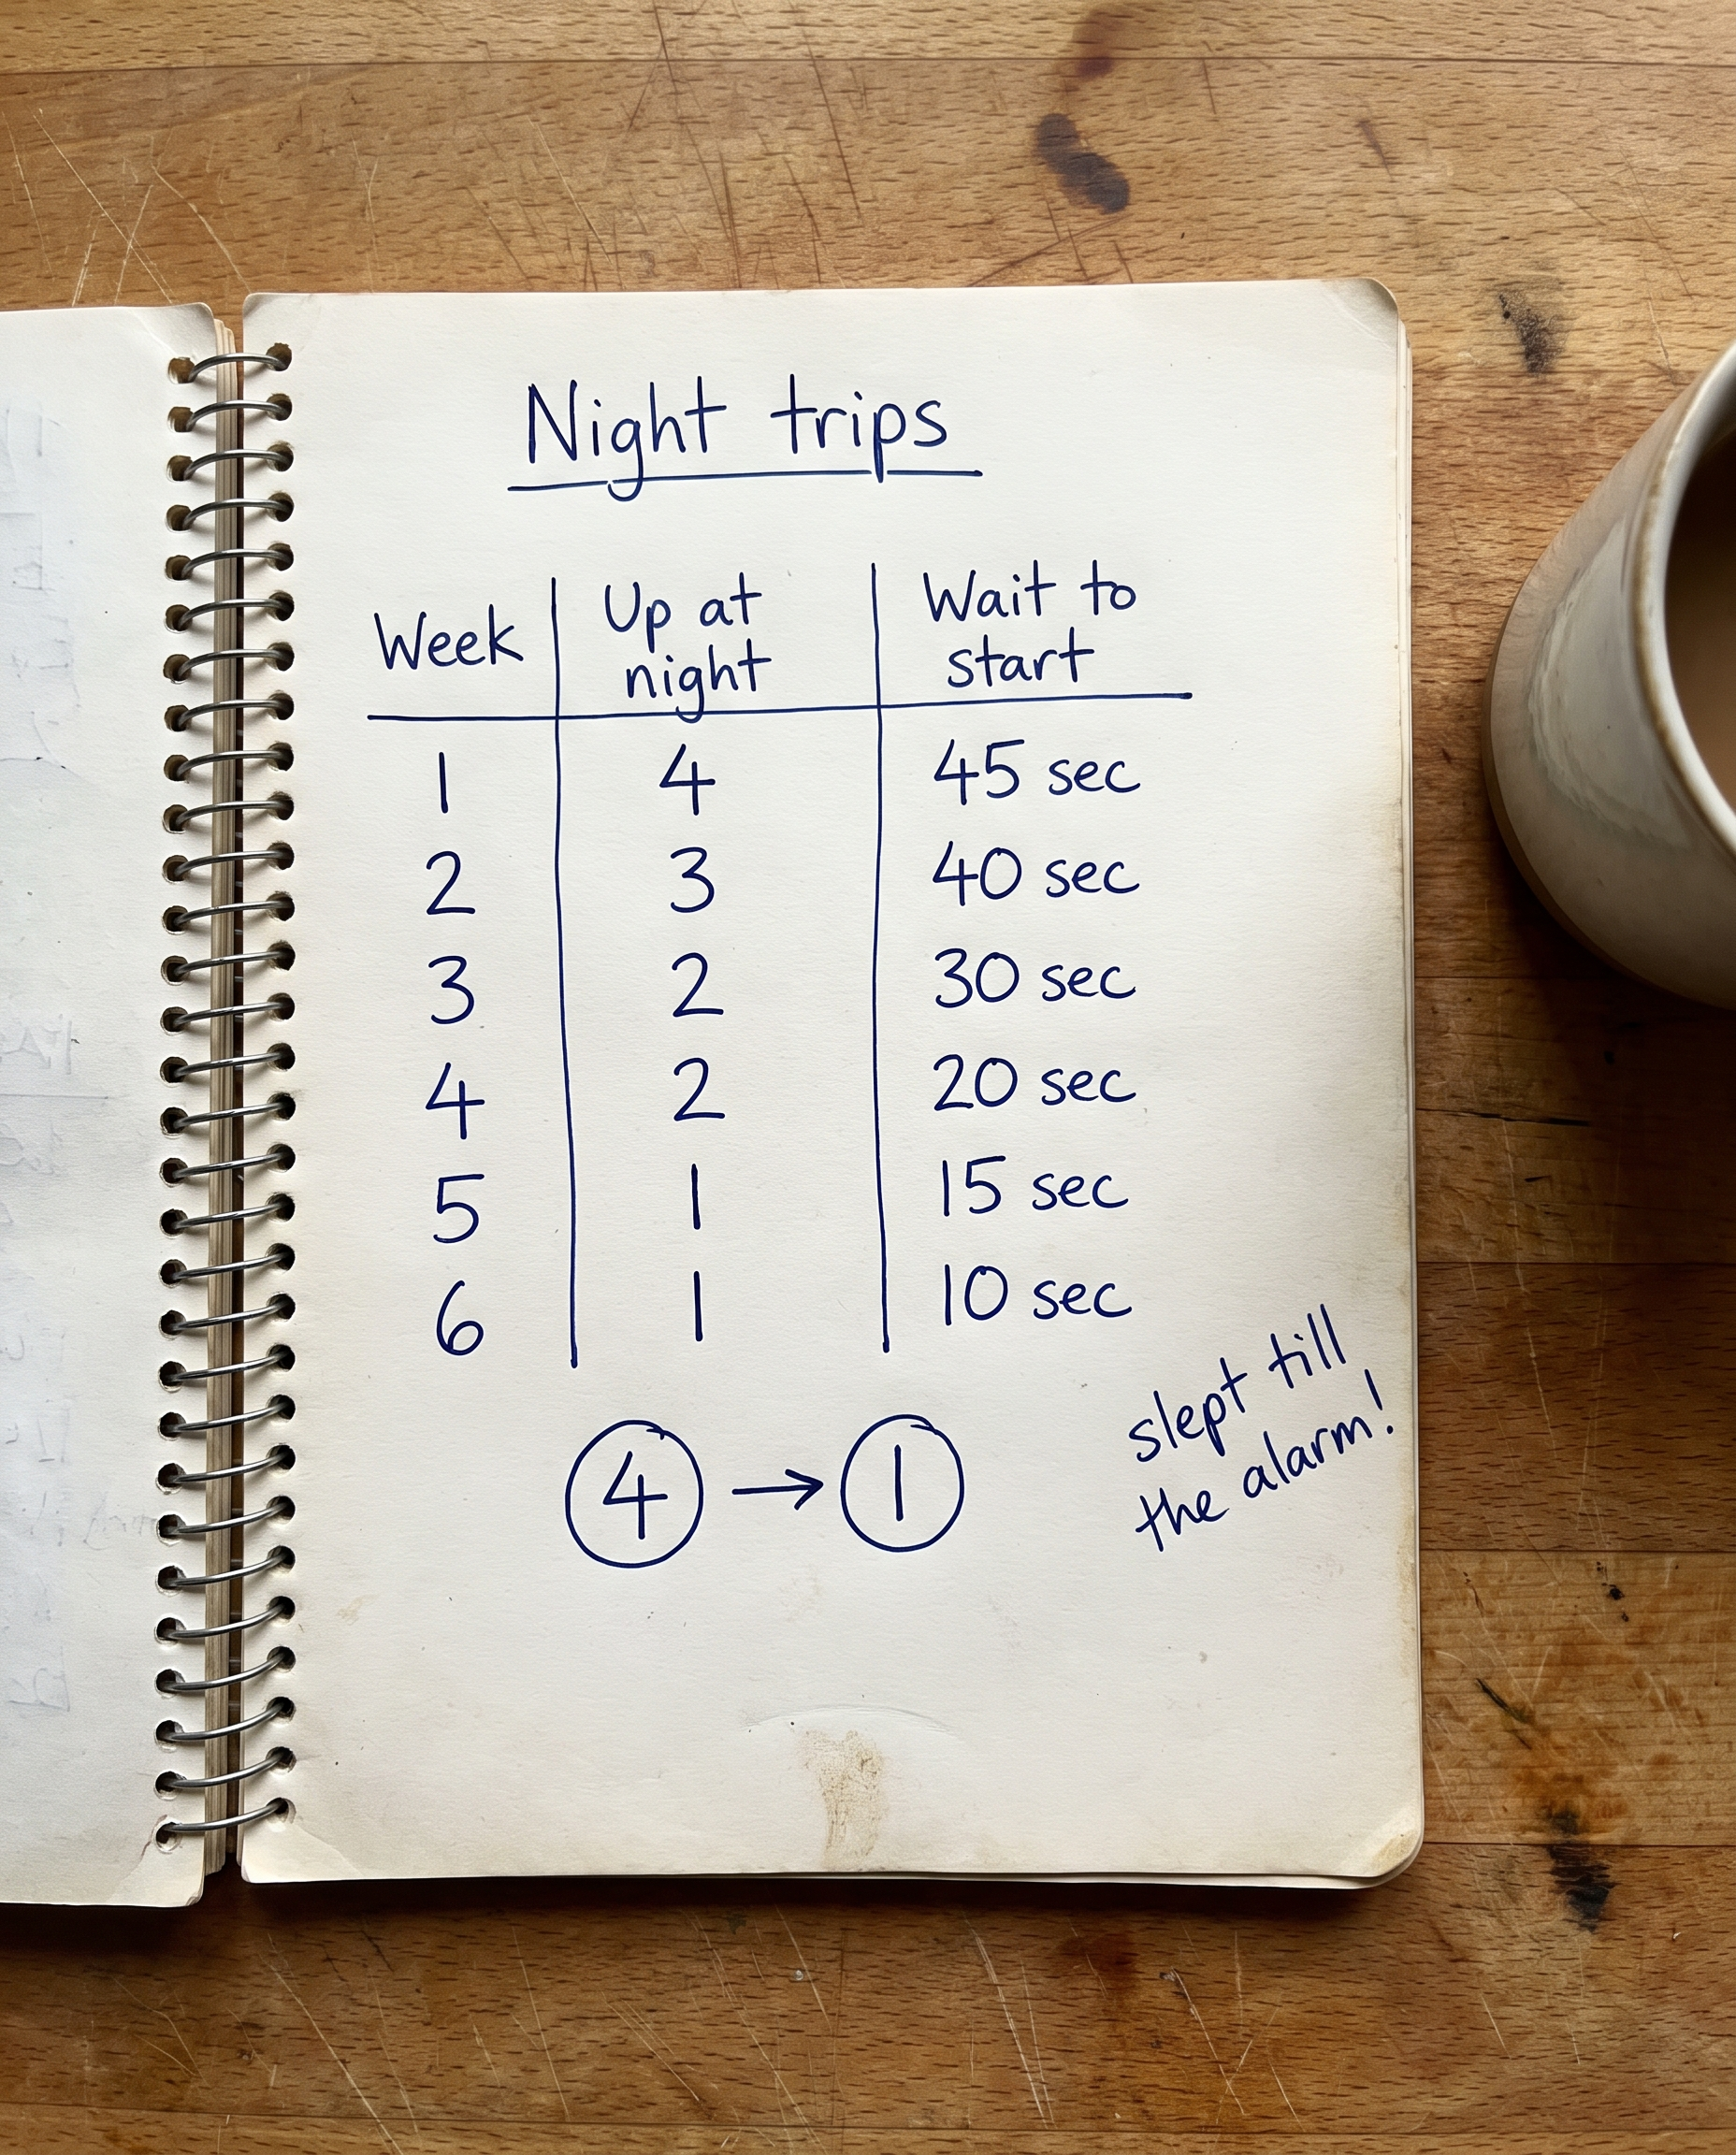 Night trips
Week | Up at night | Wait to start
1 | 4 | 45 sec
2 | 3 | 40 sec
3 | 2 | 30 sec
4 | 2 | 20 sec
5 | 1 | 15 sec
6 | 1 | 10 sec
4 → 1
slept till
the alarm!